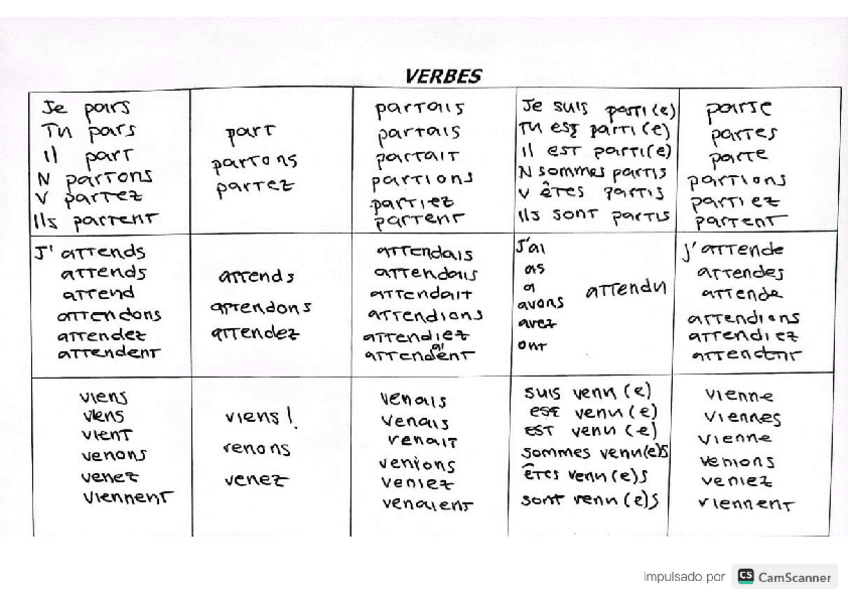 VERBES
Je pars
Tu pars
Il part
N partons
V partez
Ils partent
part
partons
partez
partais
partais
partait
partions
partiez
partent
Je suis parti(e)
Tu est parti(e)
Il est parti(e)
N sommes partis
V êtes partis
Ils sont partis
parte
partes
parte
partions
partiez
partent
J'attends
attends
attend
attendons
attendez
attendent
attends
attendons
attendez
attendais
attendais
attendait
attendions
attendiez
attendaient
J'ai
as
a
attendu
avons
avez
ont
j'attende
attendes
attende
attendions
attendiez
attendent
viens
viens
vient
venons
venez
viennent
viens!
venons
venez
venais
venais
venait
venions
veniez
venaient
suis venu(e)
est venu(e)
est venu(e)
sommes venu(e)s
êtes venu(e)s
sont venu(e)s
vienne
viennes
vienne
venions
veniez
viennent
impulsado por CS CamScanner